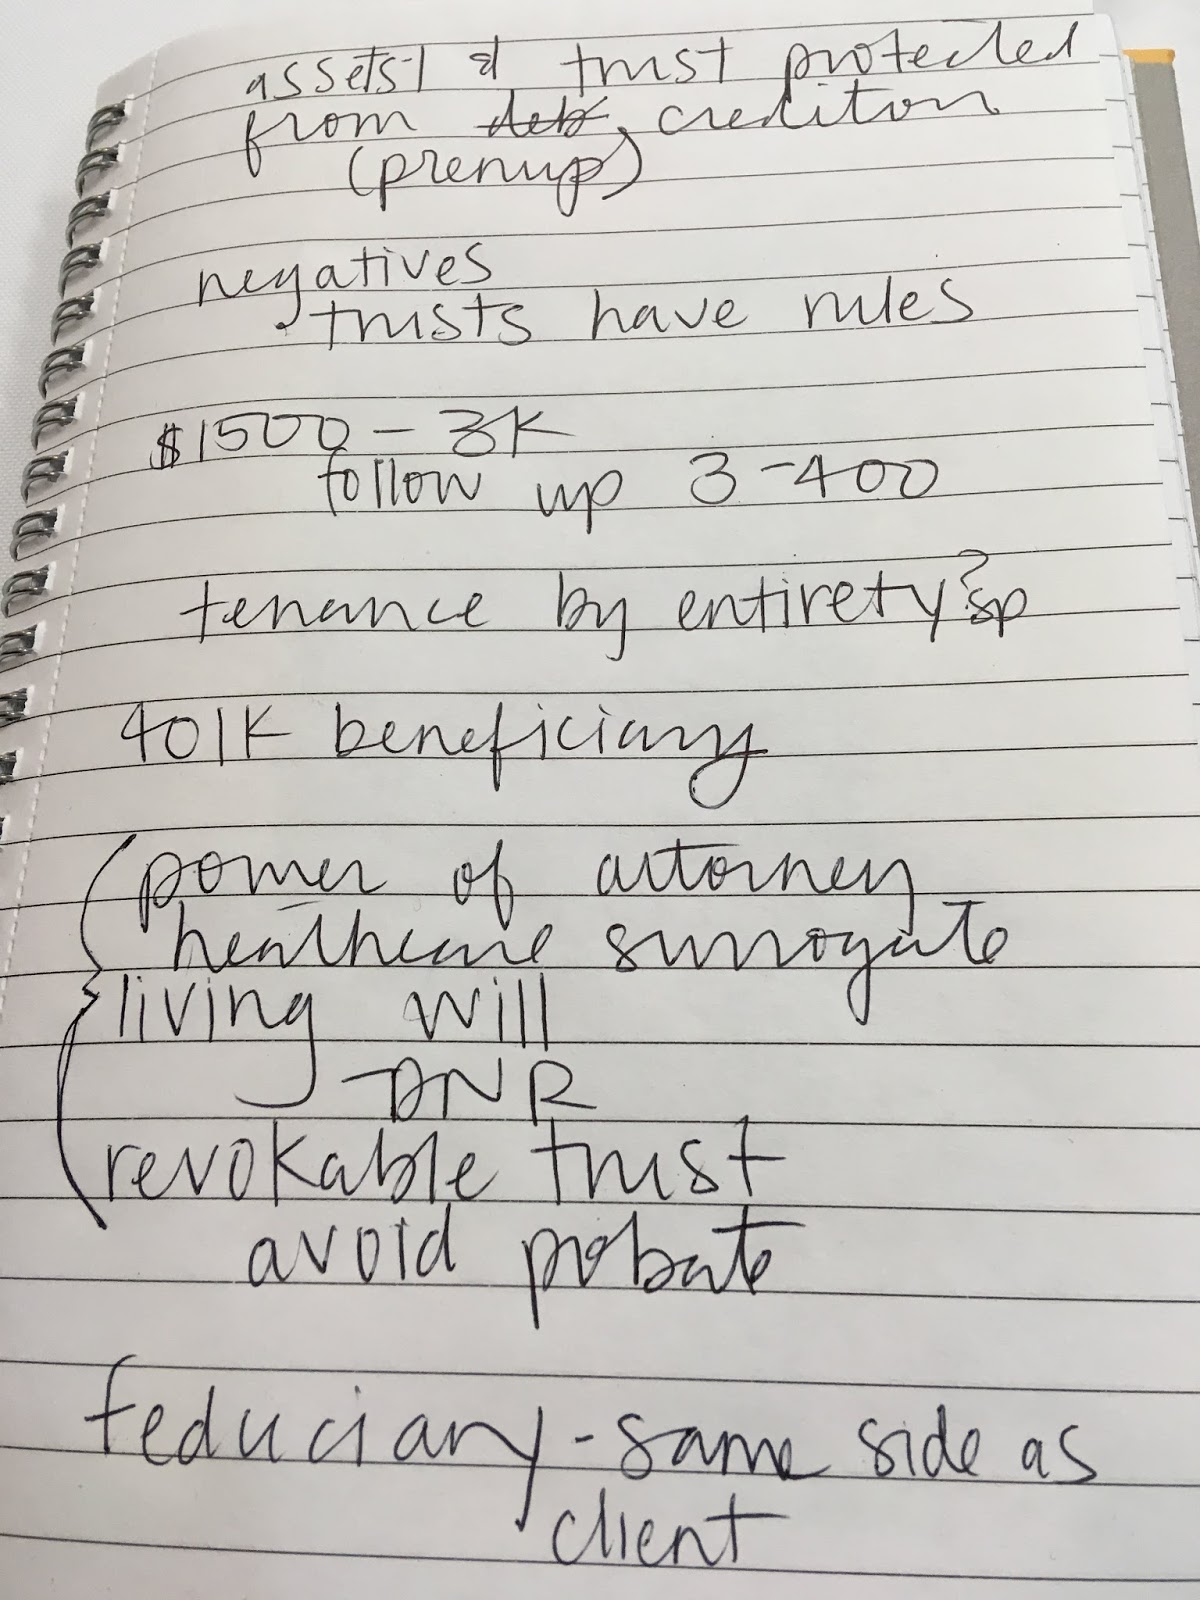 assets trust protected
from deb, creditors
(prenup)
negatives
. trusts have rules
$1500 - 3K
follow up 3-400
tenance by entirety? sp
401K beneficiary
power of attorney
healthcare surrogate
living will
DNR
revokable trust
avoid probate
feduciary - same side as
client